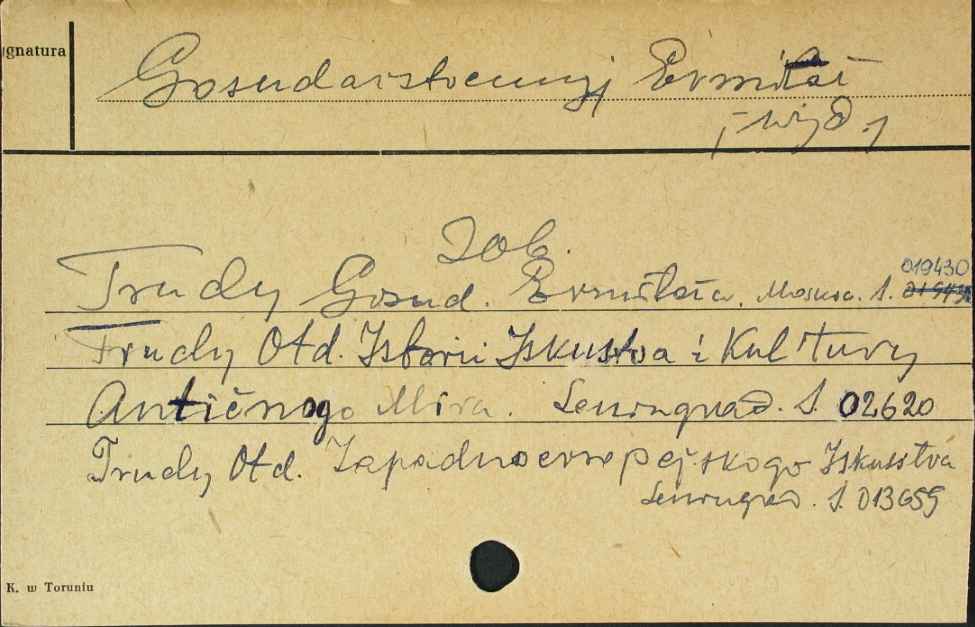 ygnatura
Gosudarstvennyj Ermitaž
, - wyd.
Zob.
Trudy Gosud. Ermitaža, Moskva. S. 019430
Trudy Otd. Istorii Iskusstva i Kul'tury
Antičnogo Mira. Leningrad. S. 02620
Trudy Otd. Zapadnoevropejskogo Iskusstva
Leningrad. S. 013659
K. w Toruniu